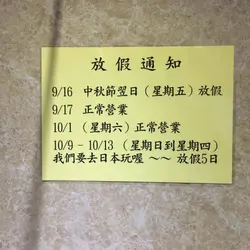 放假通知
9/16 中秋節翌日（星期五）放假
9/17 正常營業
10/1 （星期六）正常營業
10/9 - 10/13 （星期日到星期四）
我們要去日本玩喔 ～～ 放假5日